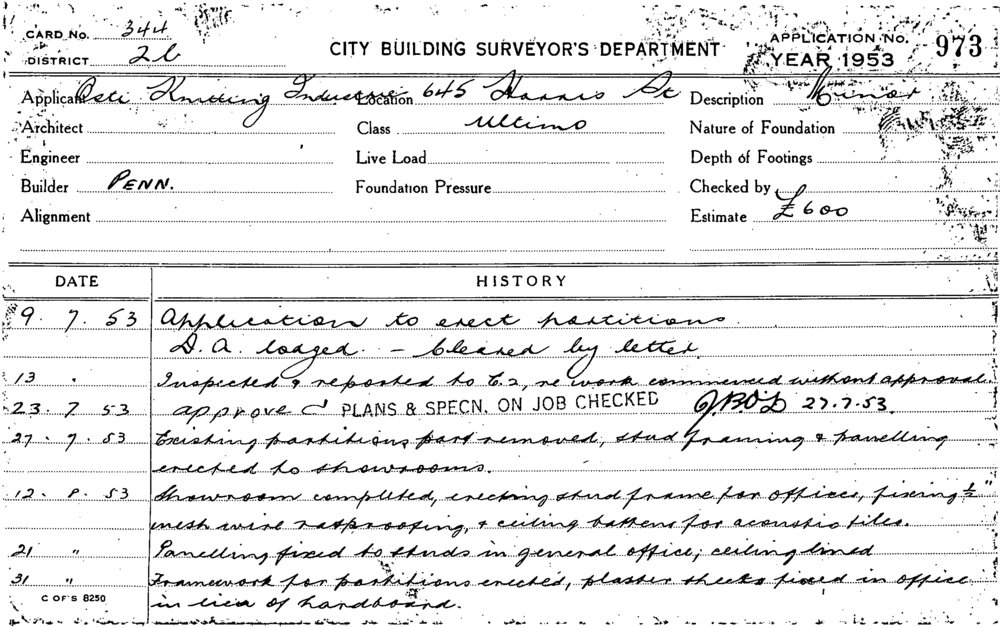 CARD No. 344
DISTRICT 26
CITY BUILDING SURVEYOR'S DEPARTMENT
APPLICATION No. 973
YEAR 1953
Applicant Osti Knitting Industries Location 645 Harris St Description Minor
Architect Class Ultimo Nature of Foundation
Engineer Live Load Depth of Footings
Builder PENN. Foundation Pressure Checked by
Alignment Estimate £600
DATE HISTORY
9. 7. 53 Application to erect partitions
D.A. lodged. - Cleared by letter.
13 " Inspected & reported to C.2, re work commenced without approval.
23. 7 53 approved PLANS & SPECN. ON JOB CHECKED 27.7.53.
27. 7. 53 Existing partitions part removed, stud framing & panelling
erected to showrooms.
12. 8. 53 Showroom completed, erecting stud frame for offices, fixing ½"
mesh wire ratproofing, & ceiling battens for acoustic tiles.
21 " Panelling fixed to studs in general office, ceiling lined
31 " Framework for partitions erected, plaster sheets fixed in office
in lieu of hardboard.
C OF S 8250